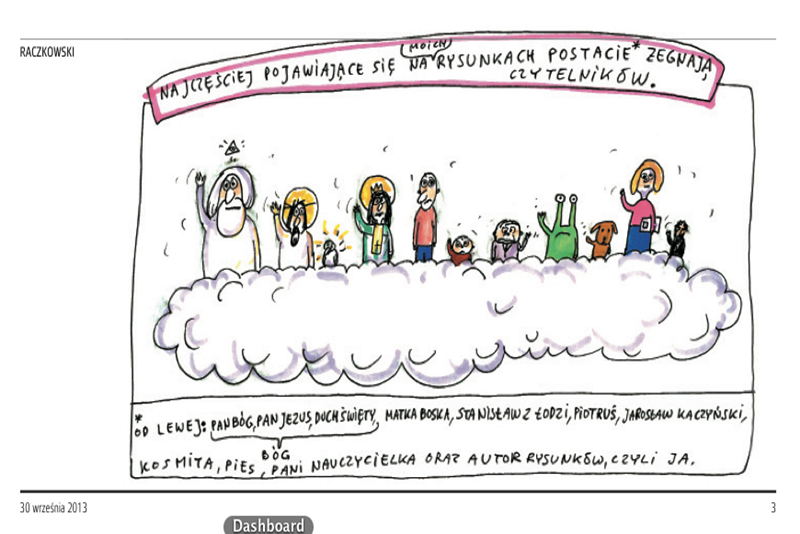 RACZKOWSKI
MOICH
NAJCZĘŚCIEJ POJAWIAJĄCE SIĘ NA RYSUNKACH POSTACIE* ŻEGNAJĄ
CZYTELNIKÓW.
*
OD LEWEJ: PAN BÓG, PAN JEZUS, DUCH ŚWIĘTY, MATKA BOSKA, STANISŁAW Z ŁODZI, PIOTRUŚ, JAROSŁAW KACZYŃSKI,
BÓG
KOSMITA, PIES, PANI NAUCZYCIELKA ORAZ AUTOR RYSUNKÓW, CZYLI JA.
30 września 2013
3
Dashboard